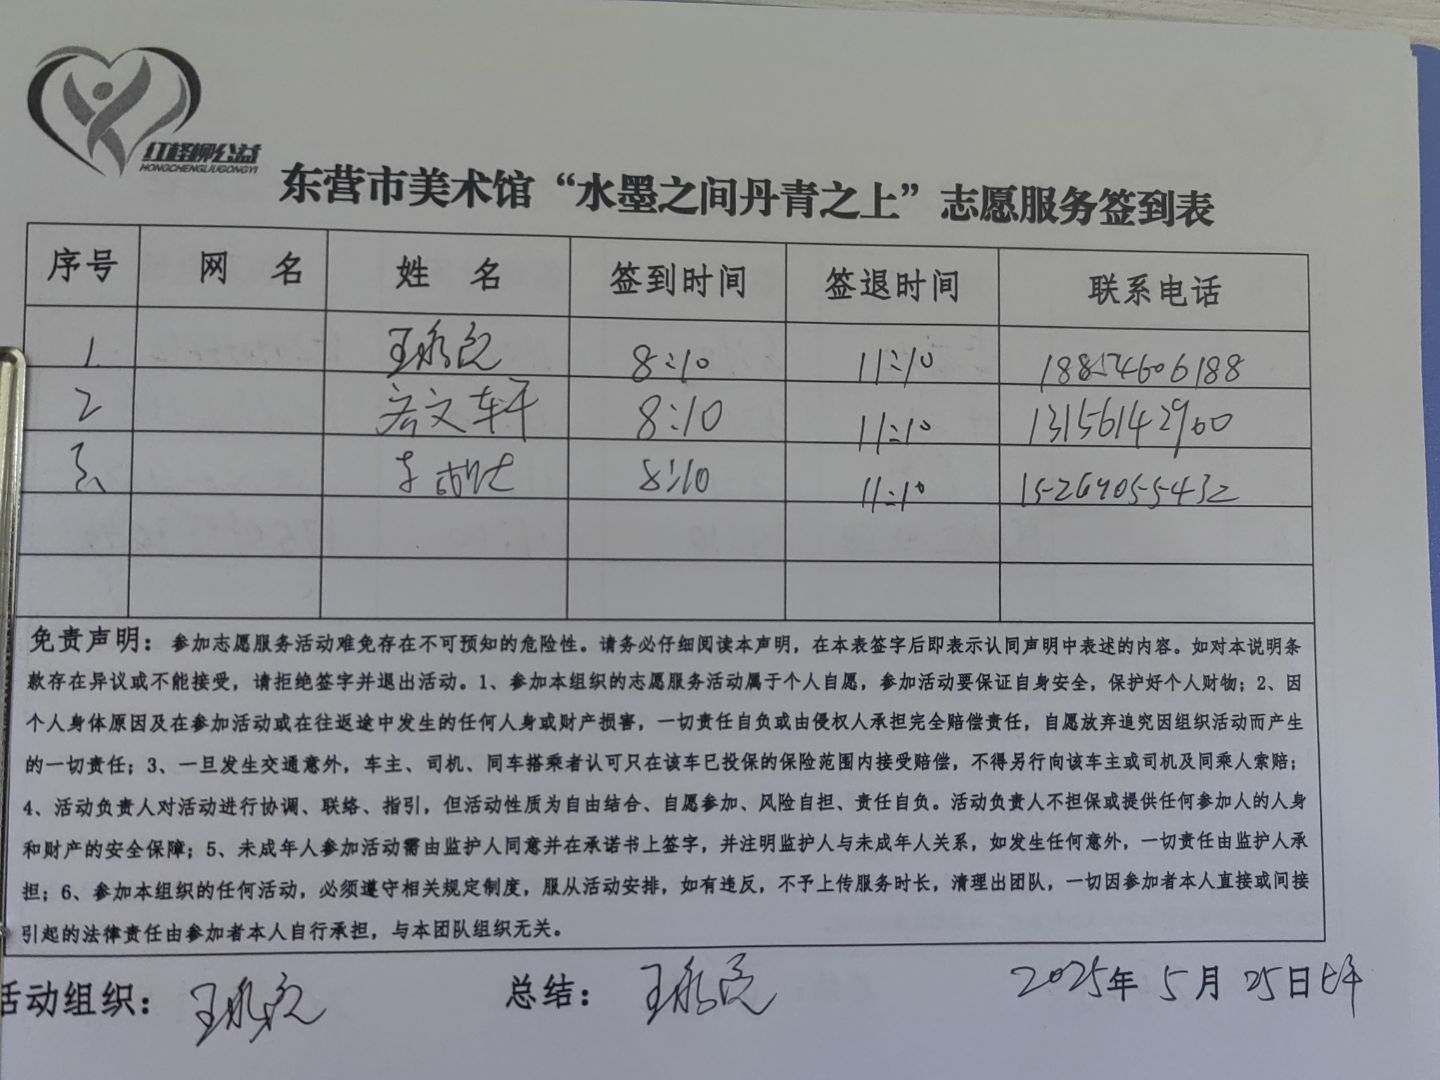 红柽柳公益
HONGCHENGLIUGONGYI
东营市美术馆“水墨之间丹青之上”志愿服务签到表
序号 网 名 姓 名 签到时间 签退时间 联系电话
1. 8:10 11:10 18854606188
2 文轩 8:10 11:10 13156142900
3、 8:10 11:10 15264055432
免责声明：参加志愿服务活动难免存在不可预知的危险性。请务必仔细阅读本声明，在本表签字后即表示认同声明中表述的内容。如对本说明条
款存在异议或不能接受，请拒绝签字并退出活动。1、参加本组织的志愿服务活动属于个人自愿，参加活动要保证自身安全，保护好个人财物；2、因
个人身体原因及在参加活动或在往返途中发生的任何人身或财产损害，一切责任自负或由侵权人承担完全赔偿责任，自愿放弃追究因组织活动而产生
的一切责任；3、一旦发生交通意外，车主、司机、同车搭乘者认可只在该车已投保的保险范围内接受赔偿，不得另行向该车主或司机及同乘人索赔；
4、活动负责人对活动进行协调、联络、指引，但活动性质为自由结合、自愿参加、风险自担、责任自负。活动负责人不担保或提供任何参加人的人身
和财产的安全保障；5、未成年人参加活动需由监护人同意并在承诺书上签字，并注明监护人与未成年人关系，如发生任何意外，一切责任由监护人承
担；6、参加本组织的任何活动，必须遵守相关规定制度，服从活动安排，如有违反，不予上传服务时长，清理出团队，一切因参加者本人直接或间接
引起的法律责任由参加者本人自行承担，与本团队组织无关。
活动组织： 总结： 2025年 5月 25日上午